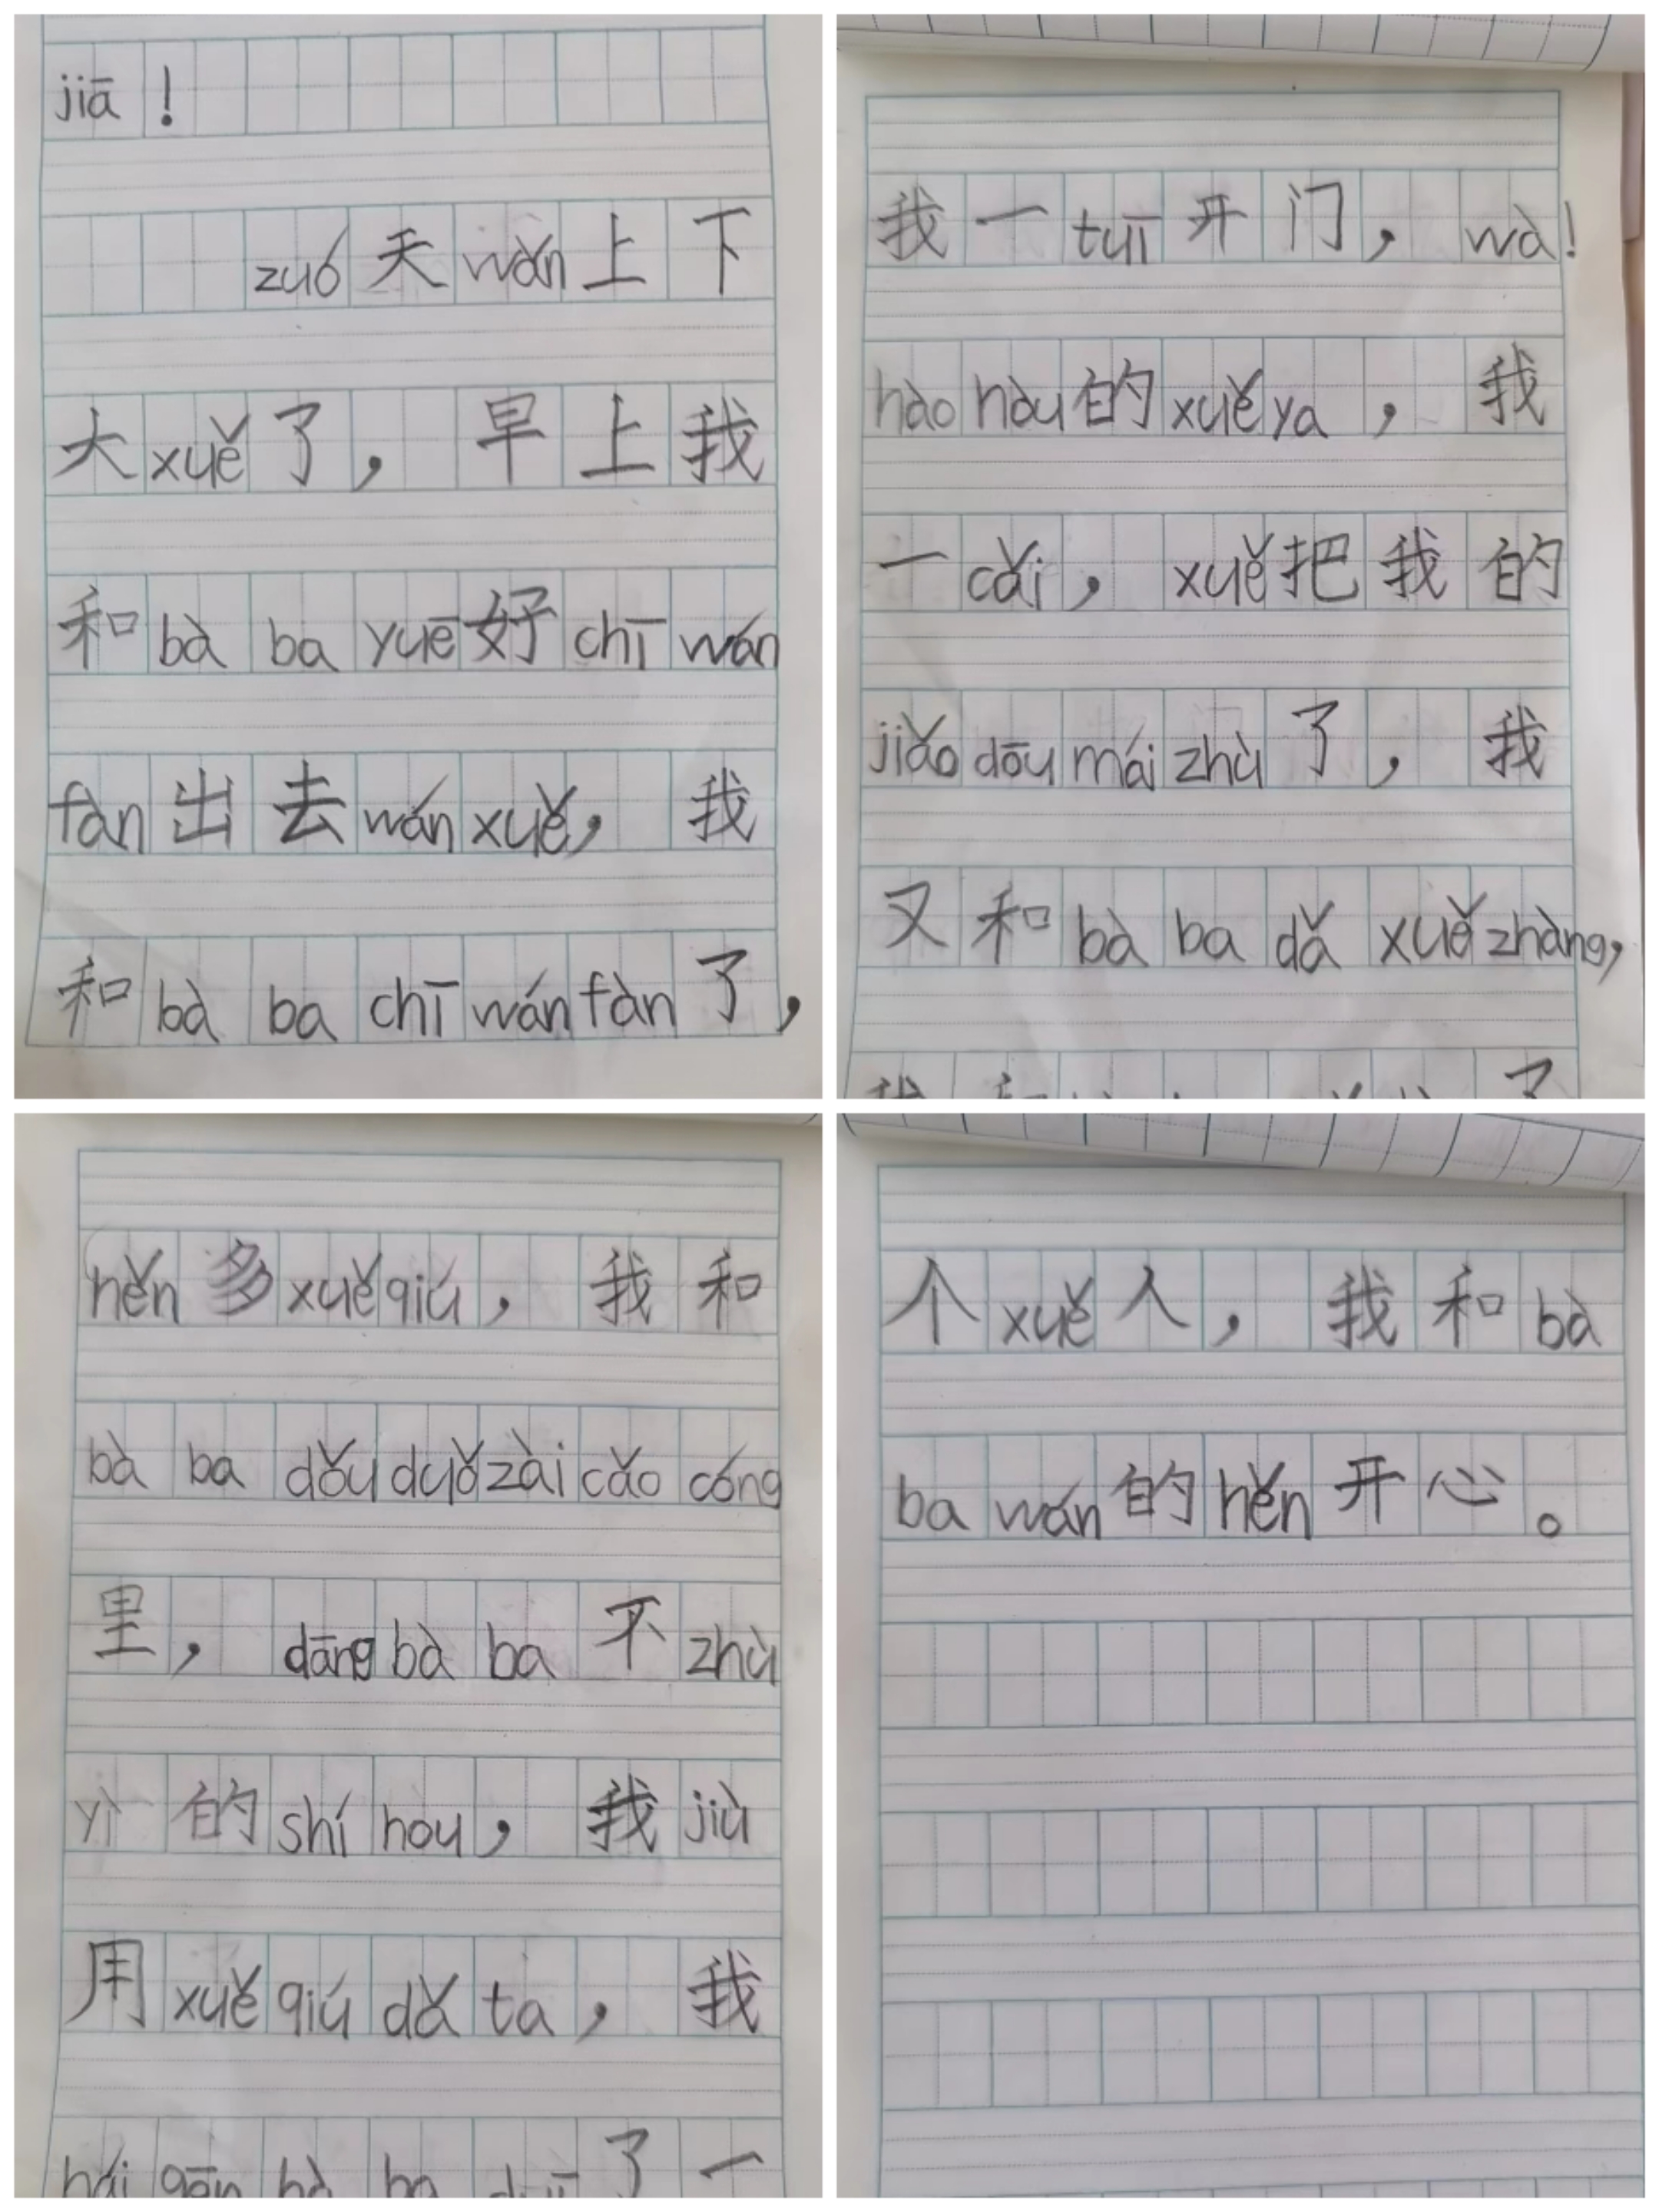 jiā！
zuó天wǎn上下
大xuě了，早上我
和bà ba yuē好chī wán
fàn出去wán xuě，我
和bà ba chī wán fàn了，
我一tuī开门，wà！
hào hòu的xuě ya，我
一cǎi，xuě把我的
jiǎo dōu mái zhù了，我
又和bà ba dǎ xuě zhàng，
hěn多xuě qiú，我和
bà ba dǒu duǒ zài cǎo cóng
里，dāng bà ba不zhù
yì的shí hou，我jiù
用xuě qiú dǎ ta，我
hái gēn bà ba duī了一
个xuě人，我和bà
ba wán的hěn开心。